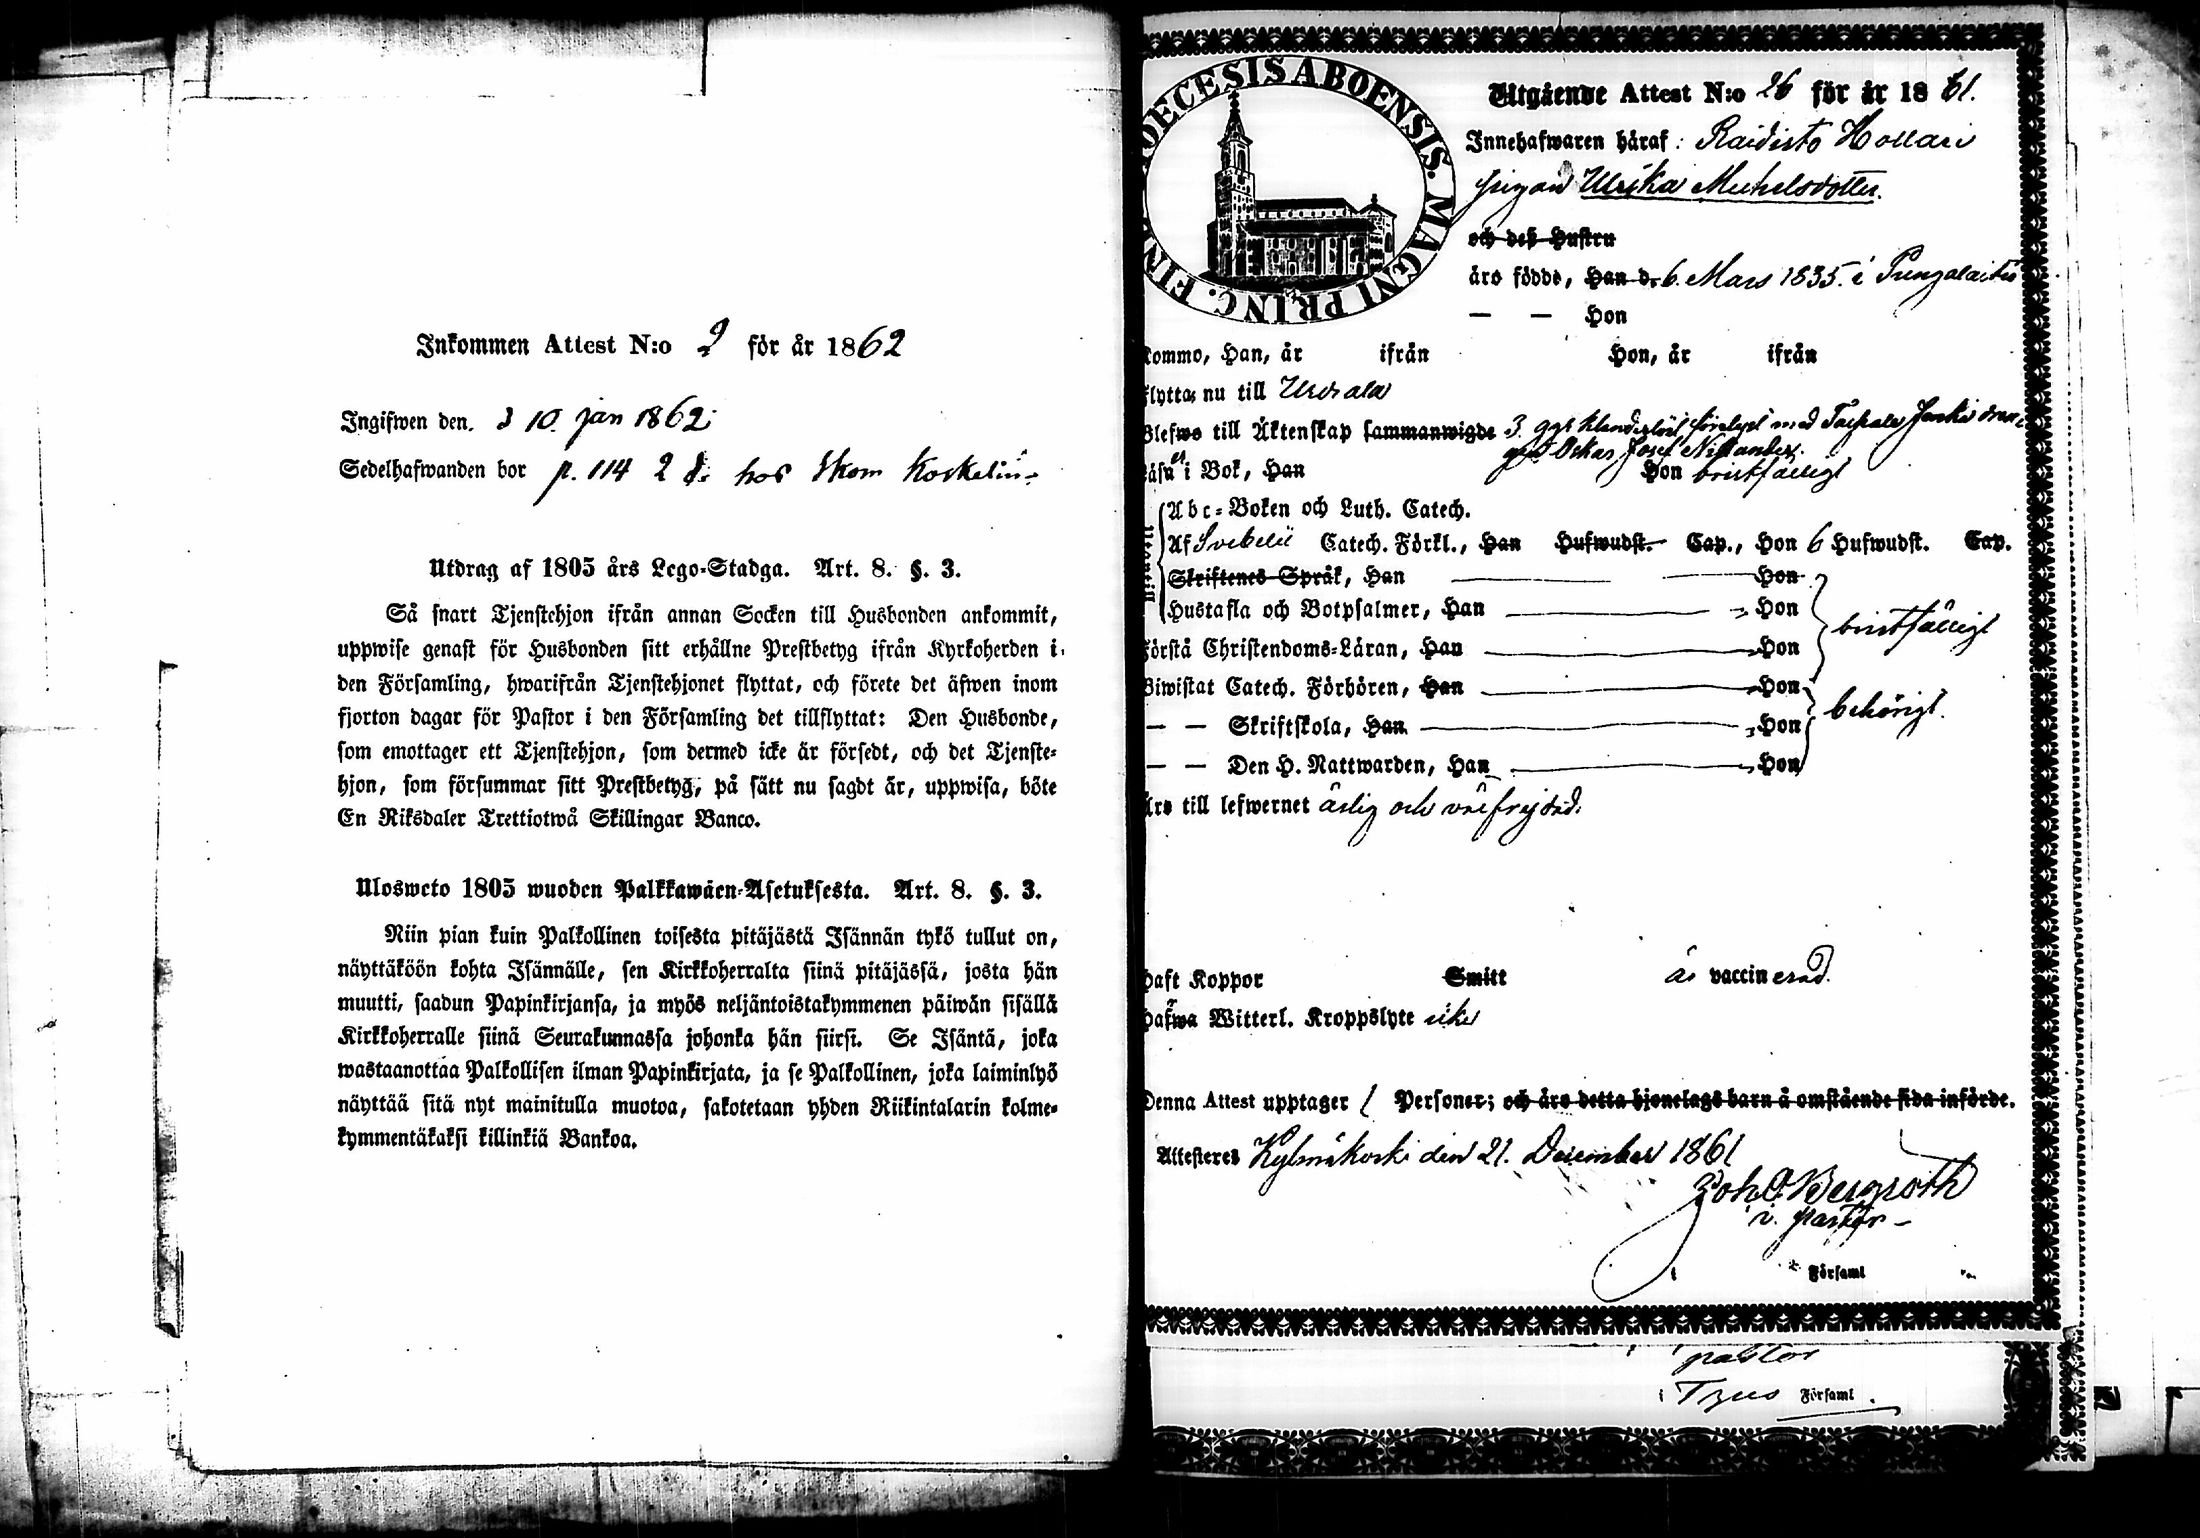 Inkommen Attest N:o 2 för år 1862
Ingifwen den. d 10. jan 1862.
Sedelhafwanden bor p. 114 2 d: hos Skom Koskelin
Utdrag af 1805 års Lego-Stadga. Art. 8. §. 3.
Så snart Tjenstehjon ifrån annan Socken till Husbonden ankommit,
uppwise genast för Husbonden sitt erhållne Prestbetyg ifrån Kyrkoherden i
den Församling, hwarifrån Tjenstehjonet flyttat, och förete det äfwen inom
fjorton dagar för Pastor i den Församling det tillflyttat: Den Husbonde,
som emottager ett Tjenstehjon, som dermed icke är försedt, och det Tjenste-
hjon, som försummar sitt Prestbetyg, på sätt nu sagdt är, uppwisa, böte
En Riksdaler Trettiotwå Skillingar Banco.
Ulosweto 1805 wuoden Palkkawäen-Asetuksesta. Art. 8. §. 3.
Niin pian kuin Palkollinen toisesta pitäjästä Isännän tykö tullut on,
näyttäköön kohta Isännälle, sen Kirkkoherralta siinä pitäjässä, josta hän
muutti, saadun Papinkirjansa, ja myös neljäntoistakymmenen päiwän sisällä
Kirkkoherralle siinä Seurakunnassa johonka hän siirsi. Se Isäntä, joka
wastaanottaa Palkollisen ilman Papinkirjata, ja se Palkollinen, joka laiminlyö
näyttää sitä nyt mainitulla muotoa, sakotetaan yhden Riikintalarin kolme-
kymmentäkaksi killinkiä Bankoa.
DIOECESIS ABOENSIS. MAGNI PRINC. FIN
Utgående Attest N:o 26 för år 1861.
Innehafwaren häraf: Raidisto Hollari
pigan Ulrika Michelsdotter.
och deß Hustru
äro födde, Han d. 6. Mars 1835. i Pungalaitio
— — Hon
kommo, Han, år ifrån Hon, år ifrån
flytta nu till Urdiala
Blefwo till Äktenskap sammanwigde 3. ggr klanderlöst förelyst med Taipale Jaski drän-
gen Oskar Josef Nillander.
Läsa i Bok, Han Hon bristfälligt
Abc-Boken och Luth. Catech.
Af Svebelii Catech. Förkl., Han Hufwudst. Cap., Hon 6 Hufwudst. Cap.
Skriftenes Språk, Han Hon
Hustafla och Botpsalmer, Han Hon bristfälligt
Förstå Christendoms-Läran, Han Hon
Biwistat Catech. Förhören, Han Hon
— — Skriftskola, Han Hon behörigt.
— — Den H. Nattwarden, Han Hon
Äro till lefwernet ärlig och välfrejdad.
haft Koppor Smitt är vaccinerad.
hafwa Witterl. Kroppslyte icke
Denna Attest upptager 1 Personer; och äro detta hjonelags barn å omstående sida införde.
Attesteres Kylmäkoski den 21. December 1861
Joh. O. Bergroth
v. pastor
Församl
pastor
i Församl